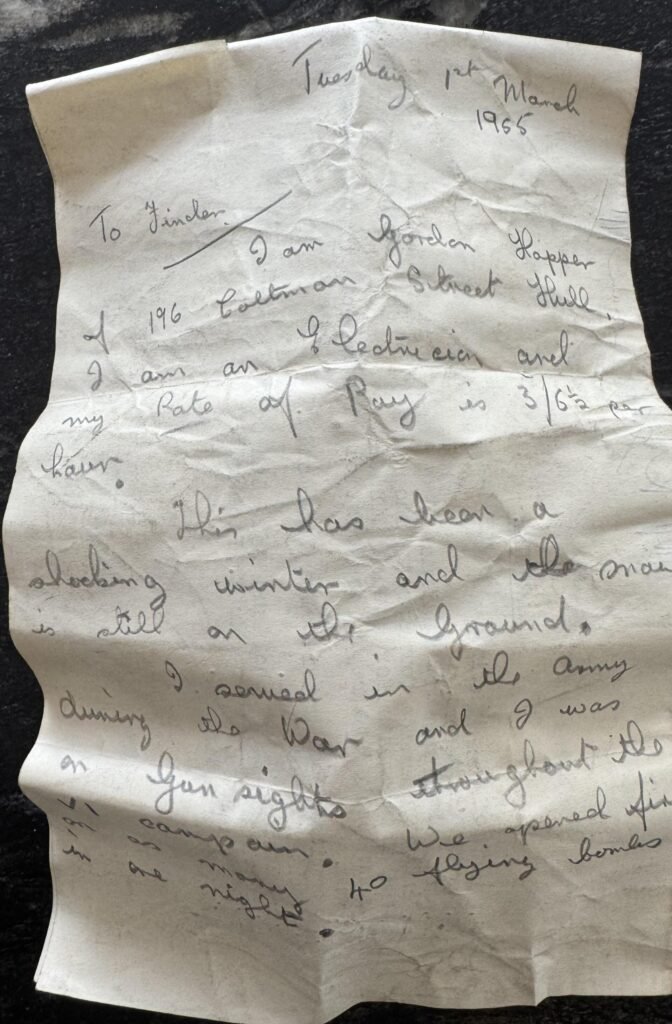 Tuesday 1st March
1955
To Finder.
I am Gordon Happer
of 196 Coltman Street Hull.
I am an Electrician and
my Rate of Pay is 3/6½ per
hour.
This has been a
shocking winter and the snow
is still on the Ground.
I served in the army
during the War and I was
on Gun sights throughout the
V1 campain. We opened fi
on as many 40 flying bombs
in one night.